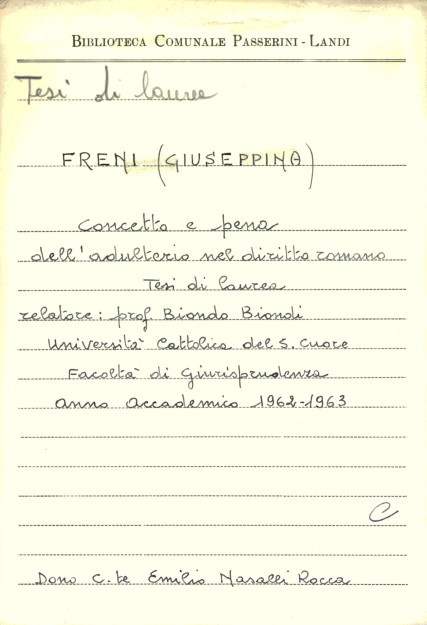 BIBLIOTECA COMUNALE PASSERINI - LANDI
Tesi di laurea
FRENI (GIUSEPPINA)
Concetto e pena
dell'adulterio nel diritto romano
Tesi di laurea
relatore: prof. Biondo Biondi
Università Cattolica del S. Cuore
Facoltà di Giurisprudenza
anno accademico 1962-1963
C
Dono C.te Emilio Nasalli Rocca